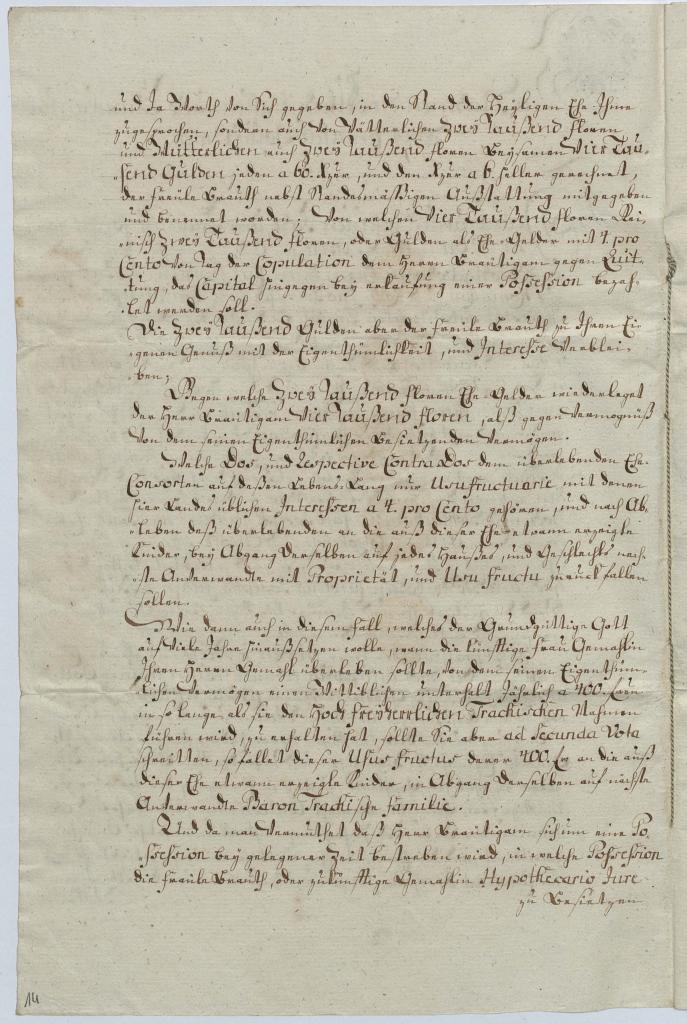 und Ja Worth von Sich gegeben, in den Stand der Heyligen Ehe Ihme
zugesprochen, sondern auch von Vätterlichen Zwey Taußend floren
und Mütterlichen auch Zwey Taußend floren Beysamen Vier Tau-
ßend Gulden jeden a 60. Xzer, und den Xzer a 6. heller gerechnet,
der freüle Brauth nebst Standesmäßigen Außstattung mitgegeben
und benennet worden; Von welchen Vier Taußend floren Rei-
nisch Zwey Taußend floren, oder Gulden als Ehe Gelder mit 4. pro
Cento von tag der Copulation dem Herrn Bräutigam gegen Quit-
tung, das Capital hingegen bey erkaufung einer Possession bezah-
let werden soll.
Die Zwey Taußend Gulden aber der freüle Brauth zu Ihren Ei-
genen Genuß mit der Eigenthümlichkeit, und Interesse verblei-
ben;
Gegen welche Zwey Taußend floren Ehe Gelder wiederleget
der Herr Bräutigam Vier Taußend floren, alß gegen Vermögnüß
von dem seinen Eigenthümlichen Besietzenden Vermögen.
Welche Dos, und Respective Contra Dos dem überlebenden Ehe-
Consorten auf deßen Lebens Lang nur Usufructuarie mit denen
hier Landes üblichen Interessen a 4. pro Cento gehören, und nach Ab-
leben deß überlebenden an die auß dieser Ehe etwann erzeigte
Kinder, bey Abgang derselben auf jedes Hauses, und Geschlechts näch-
ste Anverwandte mit Proprietät, und Usu fructu zuruck fallen
sollen.
Wie dann auch in diesem fall, welches der Grundgüttige Gott
auf viele Jahre hinaußsetzen wolle, wann die künfftige frau Gemahlin
Ihren Herrn Gemahl überleben sollte, von dem seinen Eigenthüm-
lichen Vermögen einen Wittiblichen unterhalt Jährlich a 400. fl.
in so lange als sie den Hoch freyherrlichen Trachischen Nahmen
führen wird, zu erhalten hat, sollte Sie aber ad Secunda Vota
schreitten, so fallet dieser Usus fructus derer 400. fl. an die auß
dieser Ehe etwann erzeigte Kinder, in Abgang derselben auf nächste
Anverwandte Baron Trachische familie.
Und da man vermuthet daß Herr Bräutigam sich um eine Po-
ssession bey gelegener Zeit bestreben wird, in welche Possession
die freüle Brauth, oder zukünfftige Gemahlin Hypothecario Jure
zu Besietzen
14